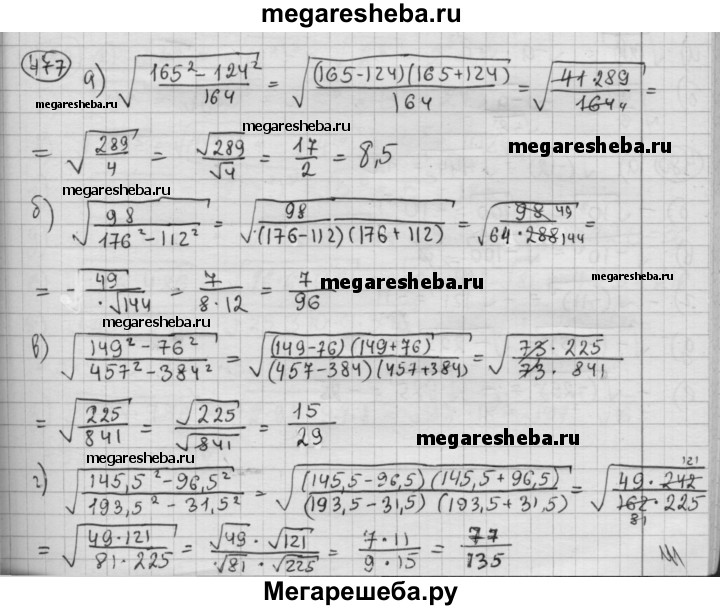 megaresheba.ru
477 а) √((165² − 124²)/164) = √((165−124)(165+124)/164) = √(41 289/164 4) =
megaresheba.ru
megaresheba.ru
megaresheba.ru
= √(289/4) = √289/√4 = 17/2 = 8,5
megaresheba.ru
megaresheba.ru
б) √(98/(176² − 112²)) = √(98/((176−112)(176+112))) = √(98 49/(64·288 144)) =
= √49/(·√144) = 7/(8·12) = 7/96
megaresheba.ru
megaresheba.ru
megaresheba.ru
в) √((149² − 76²)/(457² − 384²)) = √((149−76)(149+76)/((457−384)(457+384))) = √(73·225/(73·841))
= √(225/841) = √225/√841 = 15/29
megaresheba.ru
megaresheba.ru
г) √((145,5² − 96,5²)/(193,5² − 31,5²)) = √((145,5−96,5)(145,5+96,5)/((193,5−31,5)(193,5+31,5))) = √(49·242 121/(162 81·225))
= √(49·121/(81·225)) = √49·√121/(√81·√225) = 7·11/(9·15) = 77/135
Мегарешеба.ру